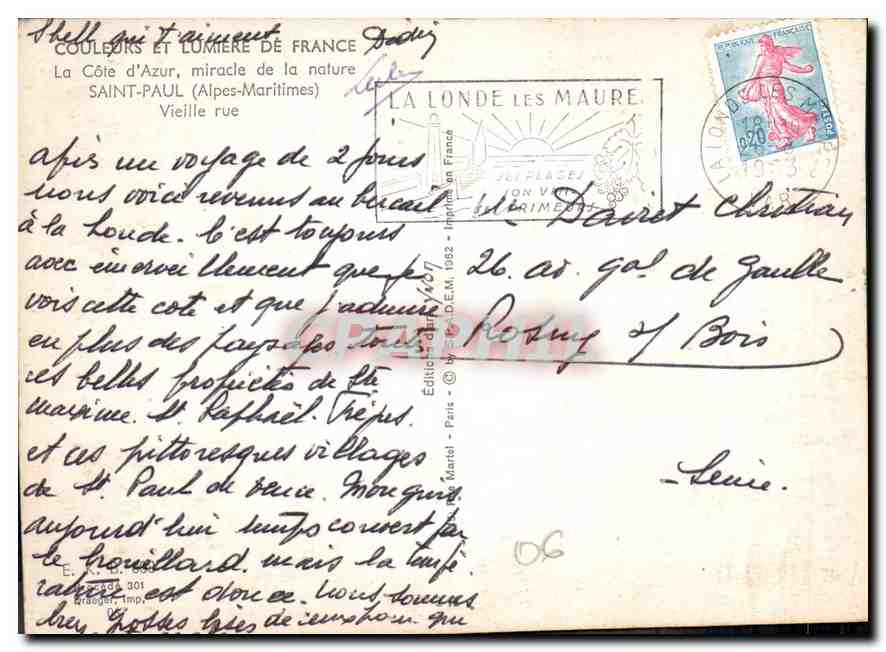 COULEURS ET LUMIÈRE DE FRANCE
La Côte d'Azur, miracle de la nature
SAINT-PAUL (Alpes-Maritimes)
Vieille rue
qui t'aiment
après un voyage de 2 jours
nous voici revenus au bercail
à la Londe. C'est toujours
avec émerveillement que je
vois cette cote et que j'admire
en plus des paysages tous
ces belles propriétés de Ste
maxime. St. Raphaël. Fréjus.
et ces pittoresques villages
de St. Paul de Vence. Mougins.
aujourd'hui temps couvert par
le brouillard. mais la tempé
rature est douce. Nous sommes
Grosses bises de
301
Draeger, Imp.
Éditions d'art YVON
Martel - Paris - © by S.P.A.D.E.M. 1962 - Imprimé en France
LA LONDE LES MAURE
SES PLAGES
SON VIN
SES PRIMEURS
RÉPUBLIQUE FRANÇAISE
0,20
POSTES
LA LONDE LES M
18
Davret Christian
26. av. Gal. de Gaulle
Rosny s/ Bois
Seine.
06
CPAPHIL